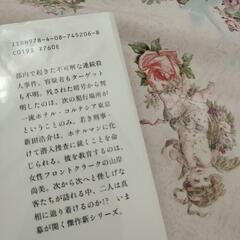 ISBN978-4-08-745206-8
C0193 ¥760E
都内で起きた不可解な連続殺
人事件。容疑者もターゲット
も不明。残された暗号から判
明したのは、次の犯行場所が
一流ホテル・コルテシア東京
ということのみ。若き刑事・
新田浩介は、ホテルマンに化
けて潜入捜査に就くことを命
じられる。彼を教育するのは、
女性フロントクラークの山岸
尚美。次から次へと怪しげな
客たちが訪れる中、二人は真
相に辿り着けるのか!? いま
幕が開く傑作新シリーズ。